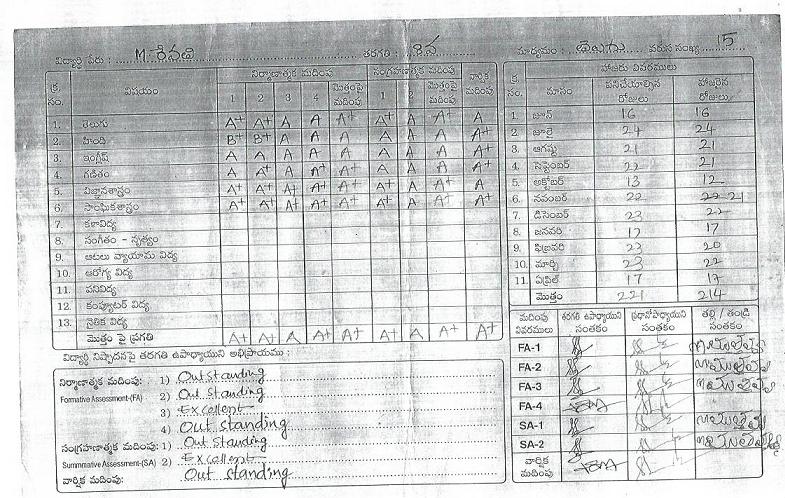 విద్యార్థి పేరు : తరగతి : మాధ్యమం : తెలుగు వరుస సంఖ్య 15
క్ర. సం. విషయం నిర్మాణాత్మక మదింపు సంగ్రహణాత్మక మదింపు వార్షిక మదింపు
1 2 3 4 మొత్తంపై మదింపు 1 2 మొత్తంపై మదింపు
1. తెలుగు A+ A+ A A A+ A+ A A+ A
2. హింది B+ B+ A A A A A A A+
3. ఇంగ్లీష్ A A A A A A A A A+
4. గణితం A A+ A A+ A A+ A A A+
5. విజ్ఞానశాస్త్రం A+ A+ A+ A+ A+ A+ A A+ A
6. సాంఘికశాస్త్రం A+ A+ A+ A+ A+ A+ A A+ A+
7. కళావిద్య
8. సంగీతం - నృత్యం
9. ఆటలు వ్యాయామ విద్య
10. ఆరోగ్య విద్య
11. పనివిద్య
12. కంప్యూటర్ విద్య
13. నైతిక విద్య
మొత్తం పై ప్రగతి A+ A+ A A+ A+ A+ A A+ A+
విద్యార్థి నిష్పాదనపై తరగతి ఉపాధ్యాయుని అభిప్రాయము :
నిర్మాణాత్మక మదింపు: 1) Out standing
Formative Assessment-(FA) 2) Out standing
3) Excellent
4) Out standing
సంగ్రహణాత్మక మదింపు: 1) Out standing
Summative Assessment-(SA) 2) Excellent
వార్షిక మదింపు: Out standing
హాజరు వివరములు
క్ర. సం. మాసం పనిచేయాల్సిన రోజులు హాజరైన రోజులు
1 జూన్ 16 16
2. జూలై 24 24
3. ఆగష్టు 21 21
4. సెప్టెంబర్ 22 21
5. అక్టోబర్ 13 12
6. నవంబర్ 22 21
7. డిసెంబర్ 23 22
8. జనవరి 17 17
9. ఫిబ్రవరి 23 20
10. మార్చి 23 22
11. ఏప్రిల్ 17 17
మొత్తం 221 214
మదింపు వివరములు తరగతి ఉపాధ్యాయుని సంతకం ప్రధానోపాధ్యాయుని సంతకం తల్లి / తండ్రి సంతకం
FA-1
FA-2
FA-3
FA-4
SA-1
SA-2
వార్షిక మదింపు